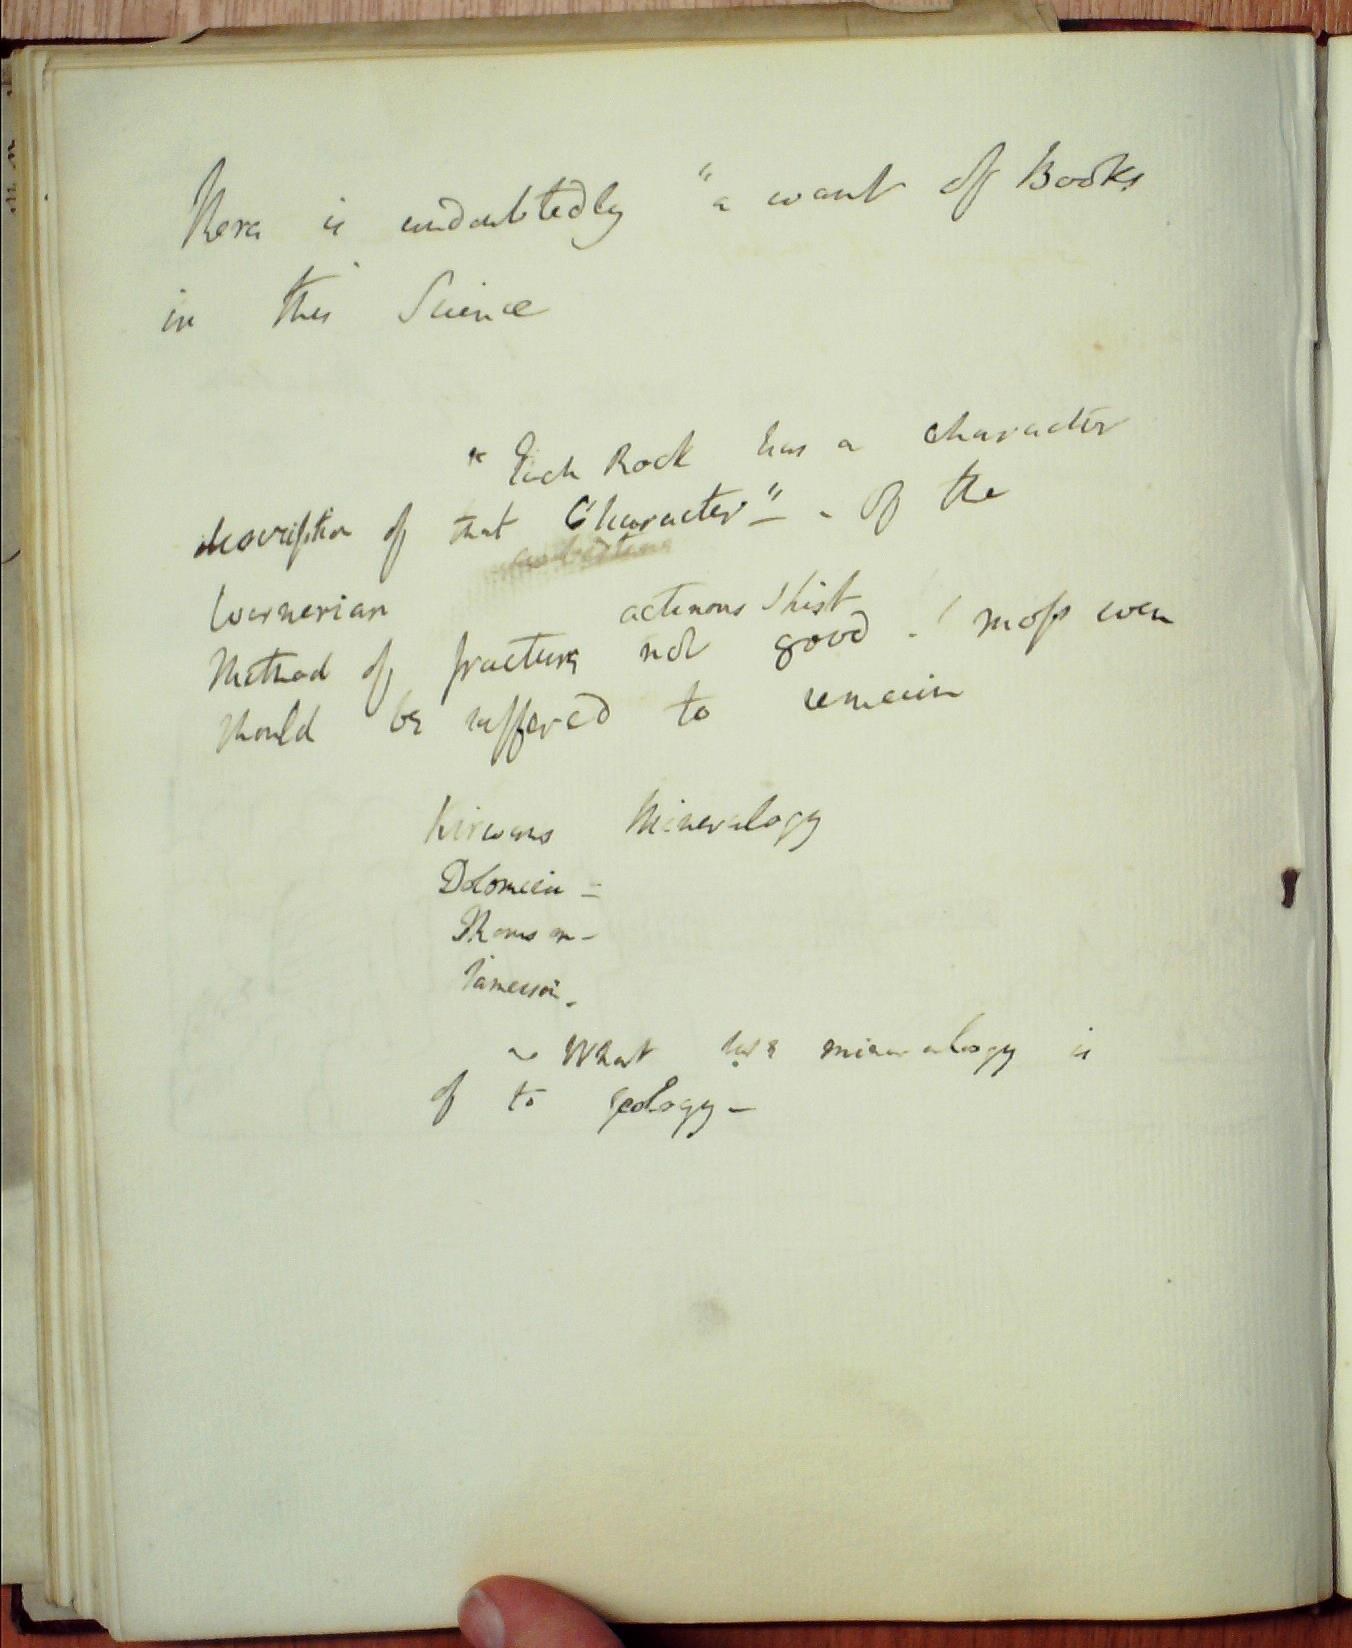 There is undoubtedly "a want of Books
in this Science
"Each Rock has a character
description of that Character" - Of the
Wernerian actinous Shist
Method of fracture not good - ! moss even
should be suffered to remain
Kirwans Mineralogy
Dolomieu -
Thomson -
Jameson -
~ What use mineralogy is
of to geology -